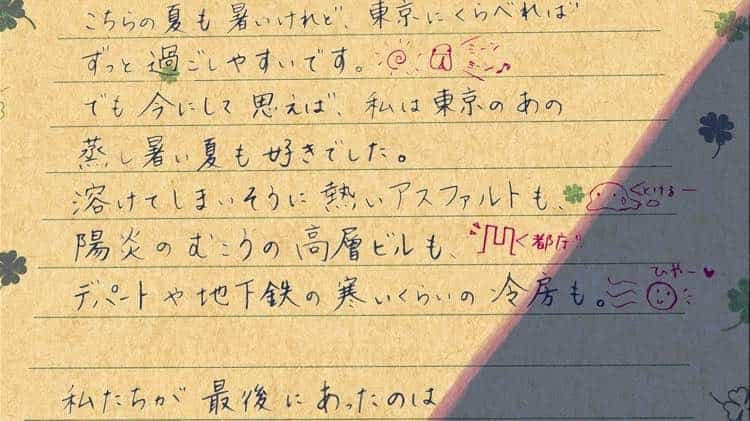 こちらの夏も暑いけれど、東京にくらべれば
ずっと過ごしやすいです。 ミーン ミーン♪
でも今にして思えば、私は東京のあの
蒸し暑い夏も好きでした。
溶けてしまいそうに熱いアスファルトも、 とけるー
陽炎のむこうの高層ビルも、 都庁!!
デパートや地下鉄の寒いくらいの冷房も。 ひやー♥
私たちが最後にあったのは